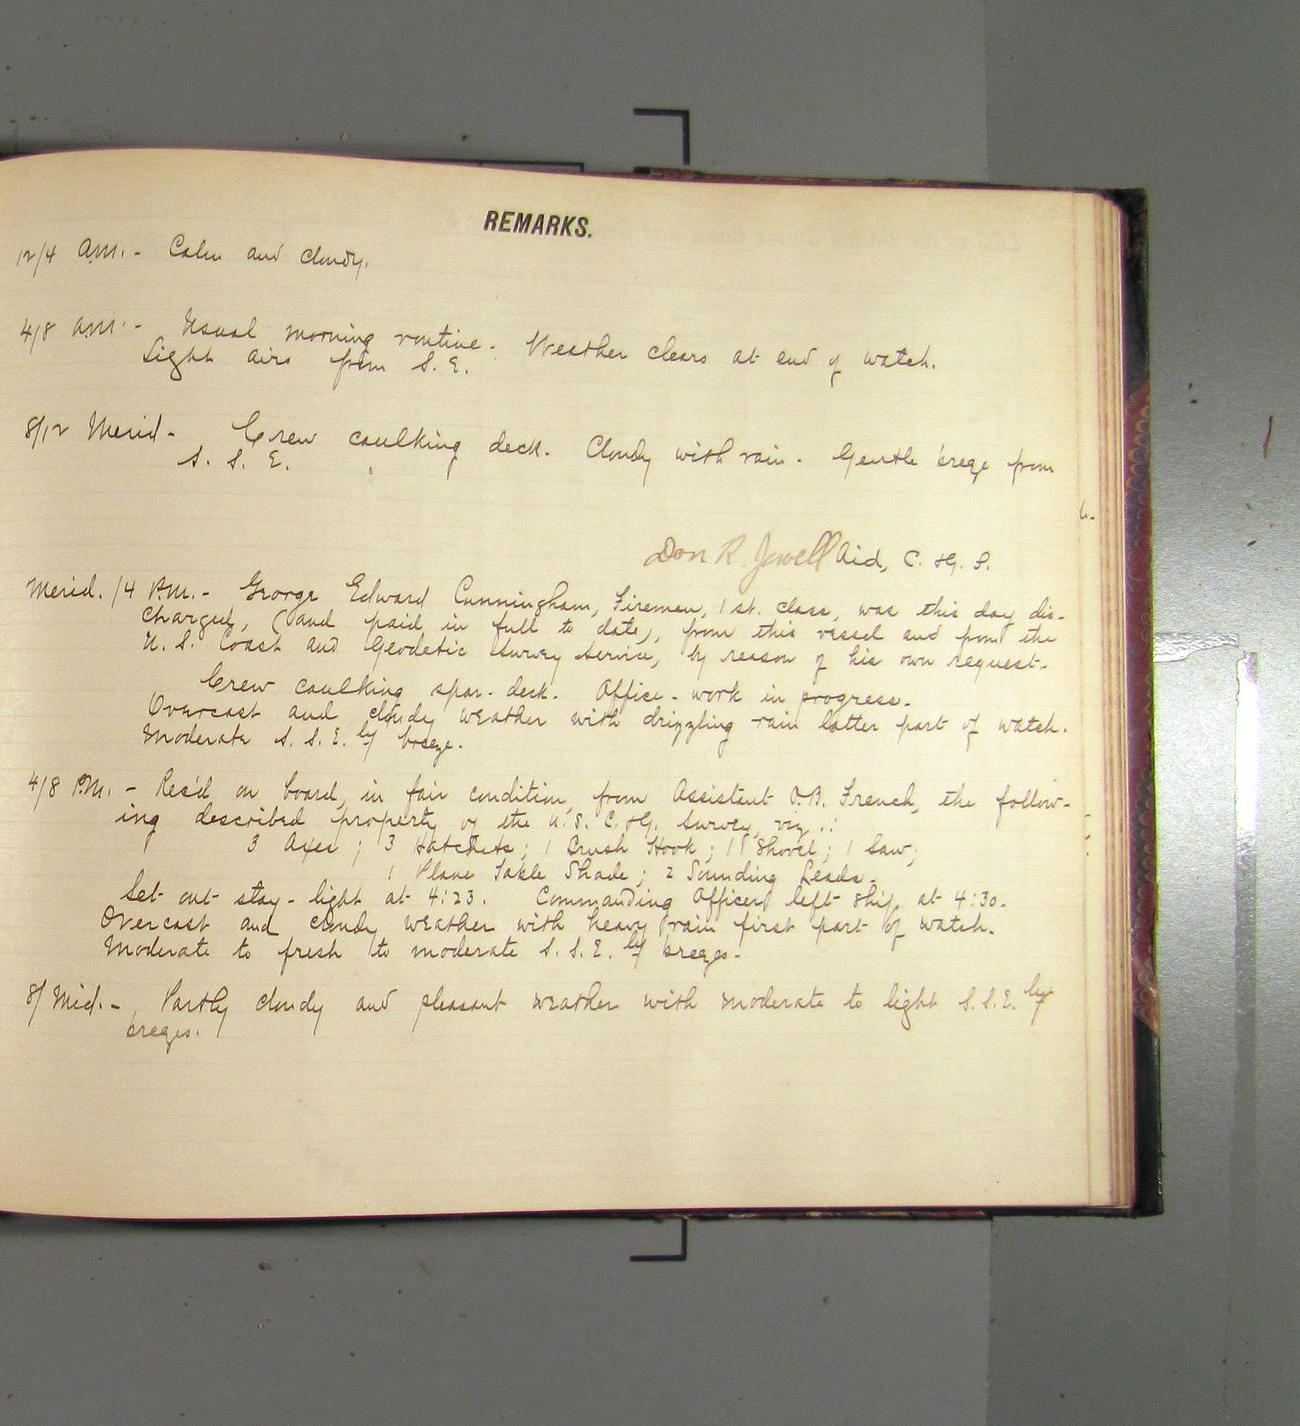 REMARKS.
12/4 A.M. - Calm and cloudy.
4/8 A.M. - Usual morning routine. Weather clears at end of watch.
Light airs from S. E.
8/12 Merid - Crew caulking deck. Cloudy with rain. Gentle breeze from
S. S. E.
Don R. Jewell Aid, C. & G. S.
Merid. /4 P.M. - George Edward Cunningham, Fireman, 1st. class, was this day dis-
charged, (and paid in full to date), from this vessel and from the
U. S. Coast and Geodetic Survey Service, by reason of his own request.
Crew caulking spar-deck. Office-work in progress.
Overcast and cloudy weather with drizzling rain latter part of watch.
Moderate S. S. E. ly breeze.
4/8 P.M. - Rec'd on board, in fair condition, from Assistant O.B. French, the follow-
ing described property of the U. S. C. & G. Survey, viz.:
3 Axes; 3 Hatchets; 1 Brush Hook; 1 Shovel; 1 Saw;
1 Plane Table Shade; 2 Sounding Leads.
Set out stay-light at 4:23. Commanding Officer left ship at 4:30.
Overcast and cloudy weather with heavy rain first part of watch.
Moderate to fresh to moderate S. S. E. ly breeze.
8/ Mid. - Partly cloudy and pleasant weather with moderate to light S.S.E. ly
breezes.